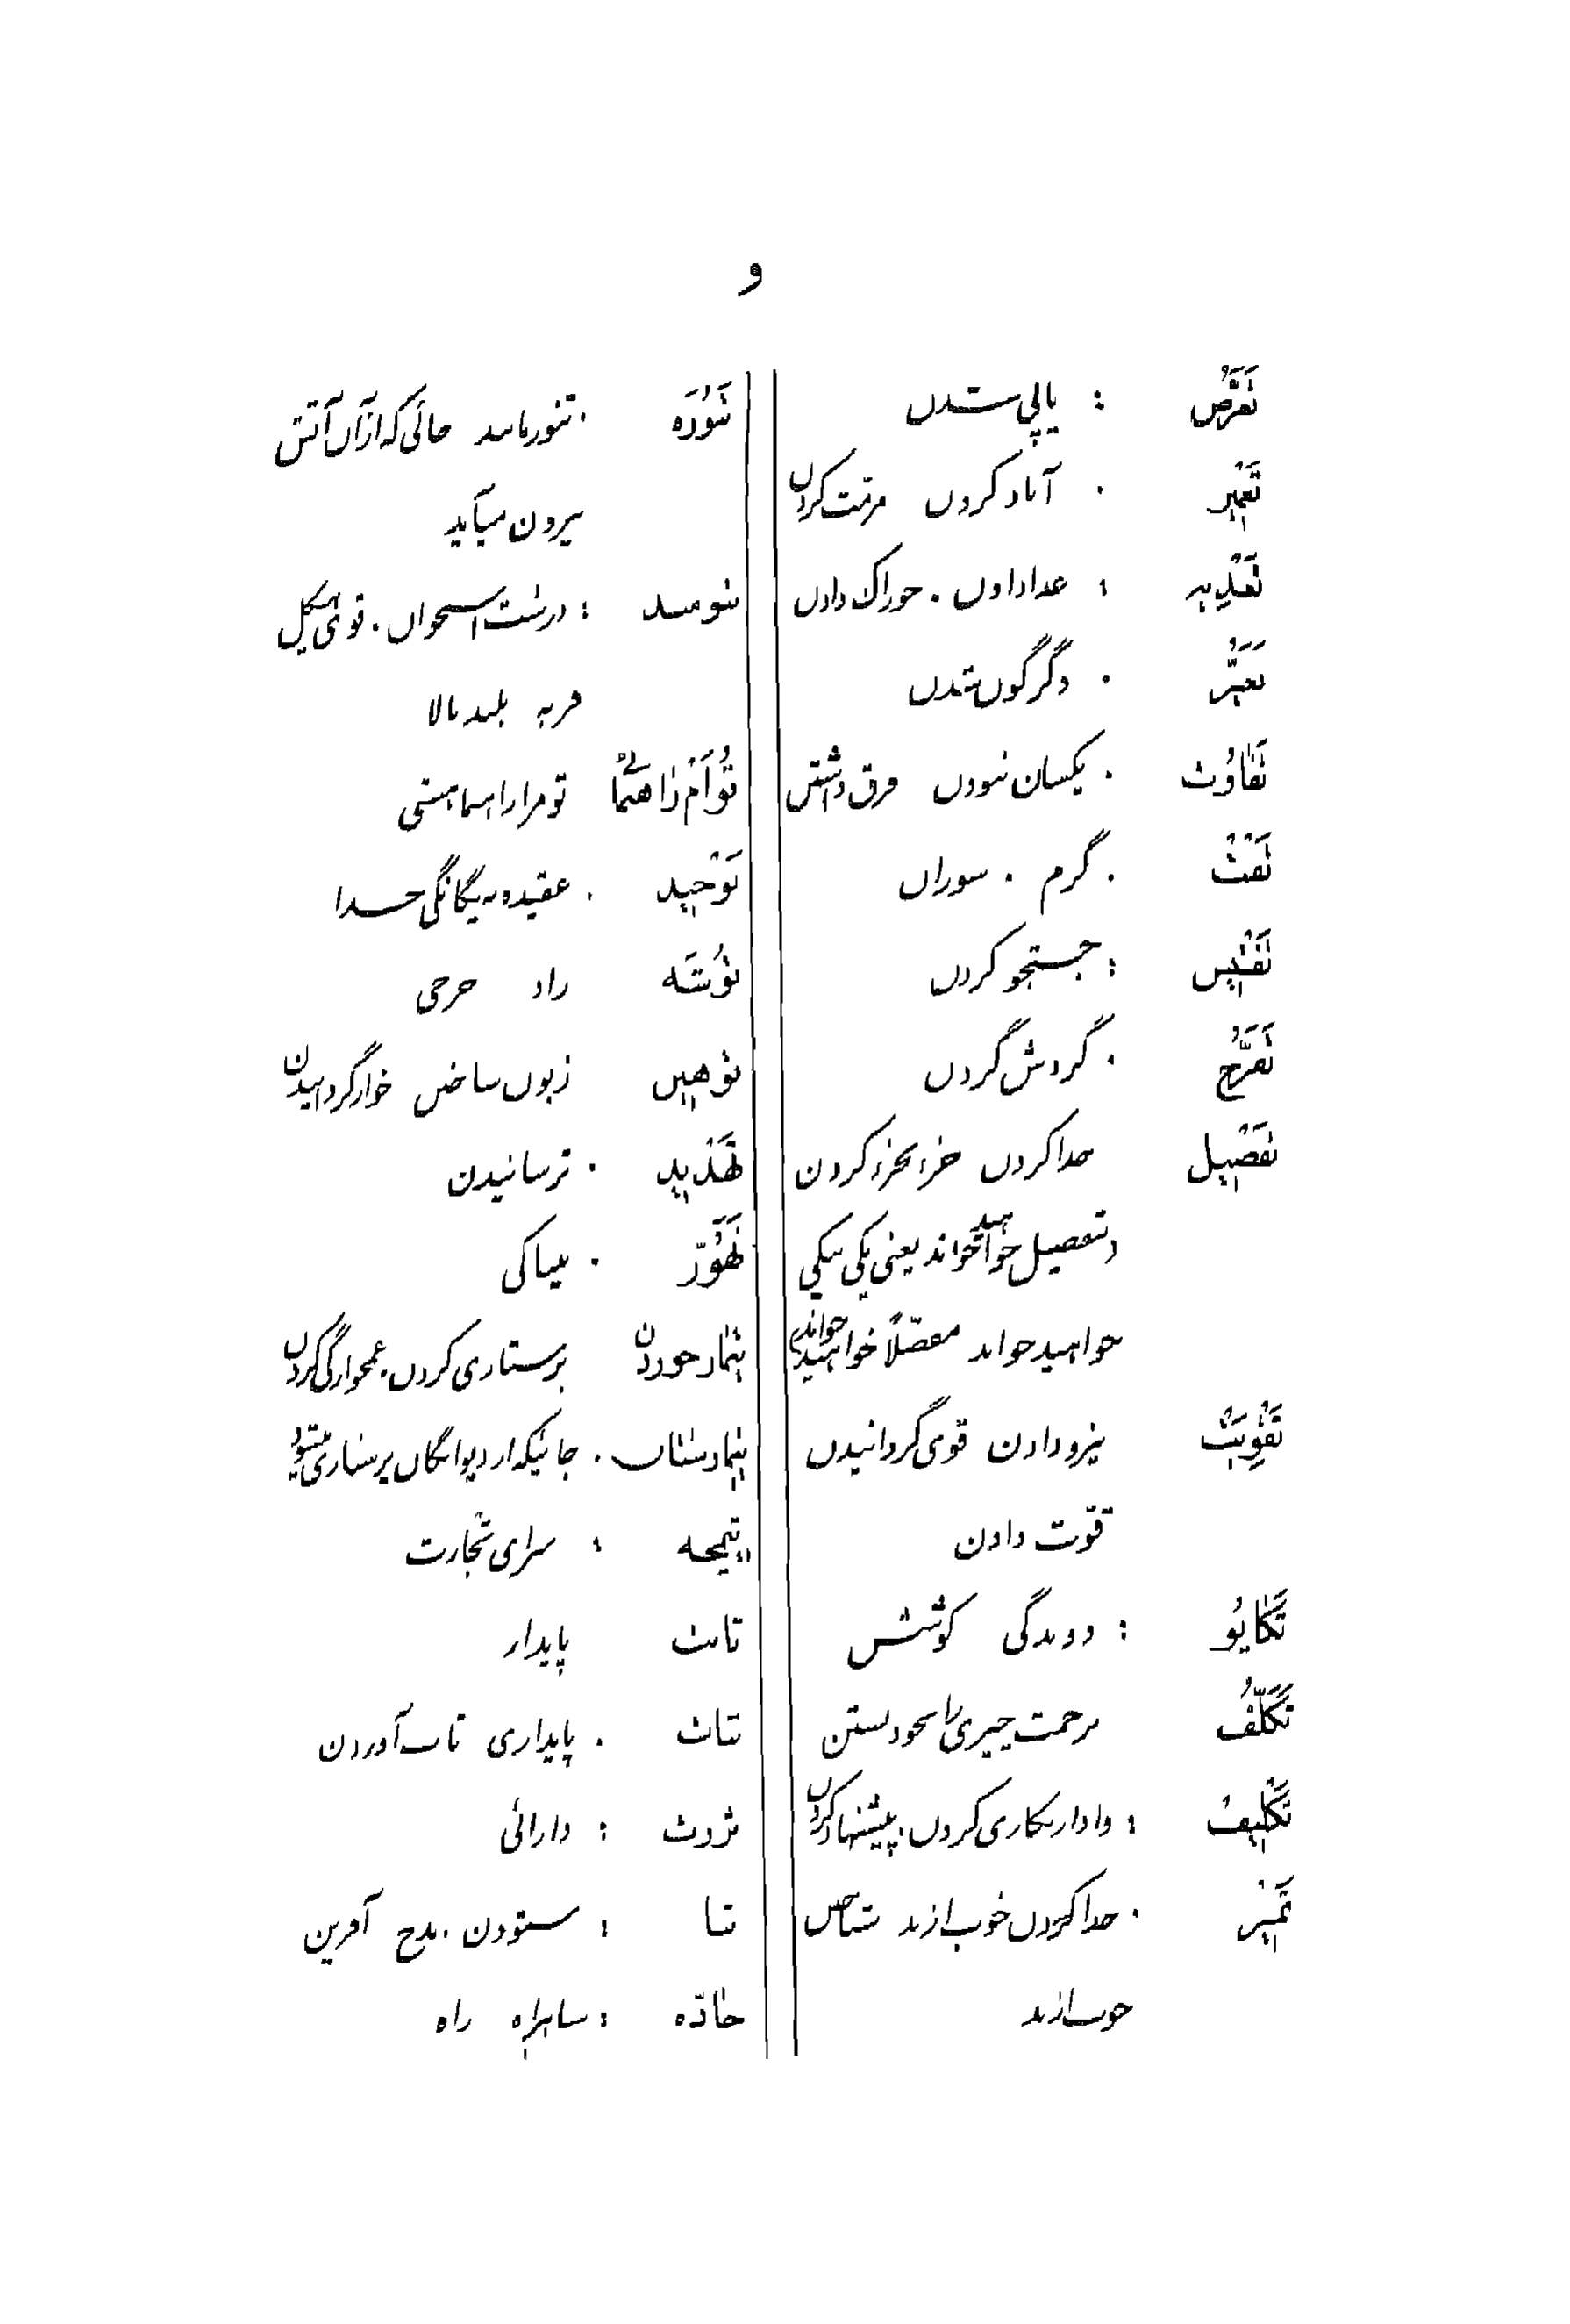 و
تَعَرُّض : پاپی شدن
تَعْمیر . آباد کردن مرمت کردن
تَغْذِیه : غذا دادن . خوراک دادن
تَغَیُّر . دگرگون شدن
تَفاوُت . یکسان نبودن فرق داشتن
تَفْتْ . گرم . سوزان
تَفْتیش : جستجو کردن
تَفَرُّج . گردش کردن
تَفْصیل جدا کردن جزء بجزء کردن
بتفصیل خواهید خواند یعنی یکی یکی
خواهید خواند مفصّلاً خواهید خواند
تَقْوِیَتْ نیرو دادن قوی گردانیدن
قوّت دادن
تَکاپُو : دوندگی کوشش
تَکَلُّف زحمت چیزی را بخود بستن
تَکْلیف : وادار بکاری کردن . پیشنهاد کردن
تَمیز . جدا کردن خوب از بد شناختن
خوب از بد
تَنُورَه . تنور مانند جائی که از آن آتش
بیرون میآید
تنومند : درشت استخوان . قوی هیکل
فربه بلند بالا
تُو اَمْ را هنما تو مرا راهنما هستی
تَوْحید . عقیده به یگانگی خدا
تُوشَه زاد خرجی
تَوْهین زبون ساختن خوار گردانیدن
تَهْدید . ترسانیدن
تَهَوُّر . بیباکی
تیمار خوردن پرستاری کردن . غمخوارگی کردن
تیمارستان . جائیکه از دیوانگان پرستاری میشود
تیمچه : سرای تجارت
ثابت پایدار
ثبات . پایداری تاب آوردن
ثروت : دارائی
ثنا : ستودن . مدح آفرین
جادّه : شاهراه راه